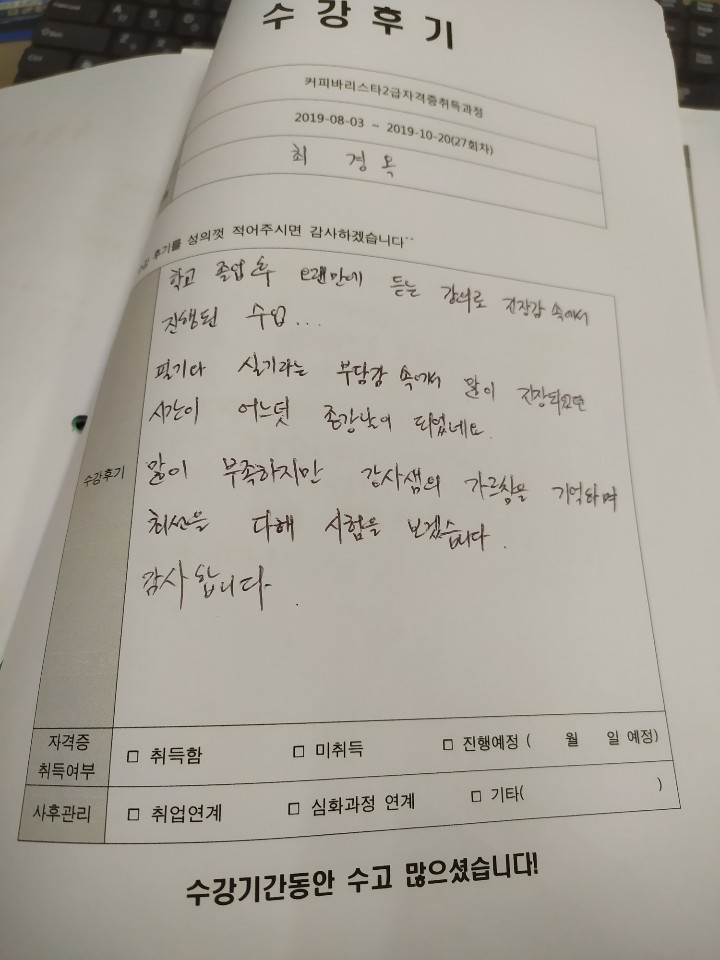 수 강 후 기
커피바리스타2급자격증취득과정
2019-08-03 ~ 2019-10-20(27회차)
최 경 옥
후기를 성의껏 적어주시면 감사하겠습니다^^
수강후기
학교 졸업 후 오랜만에 듣는 강의로 긴장감 속에서
진행된 수업...
필기다 실기라는 부담감 속에서 많이 긴장되었던
시간이 어느덧 종강날이 되었네요.
많이 부족하지만 강사샘의 가르침을 기억하며
최선을 다해 시험을 보겠습니다.
감사합니다.
자격증
취득여부
□ 취득함 □ 미취득 □ 진행예정 ( 월 일 예정)
사후관리 □ 취업연계 □ 심화과정 연계 □ 기타( )
수강기간동안 수고 많으셨습니다!